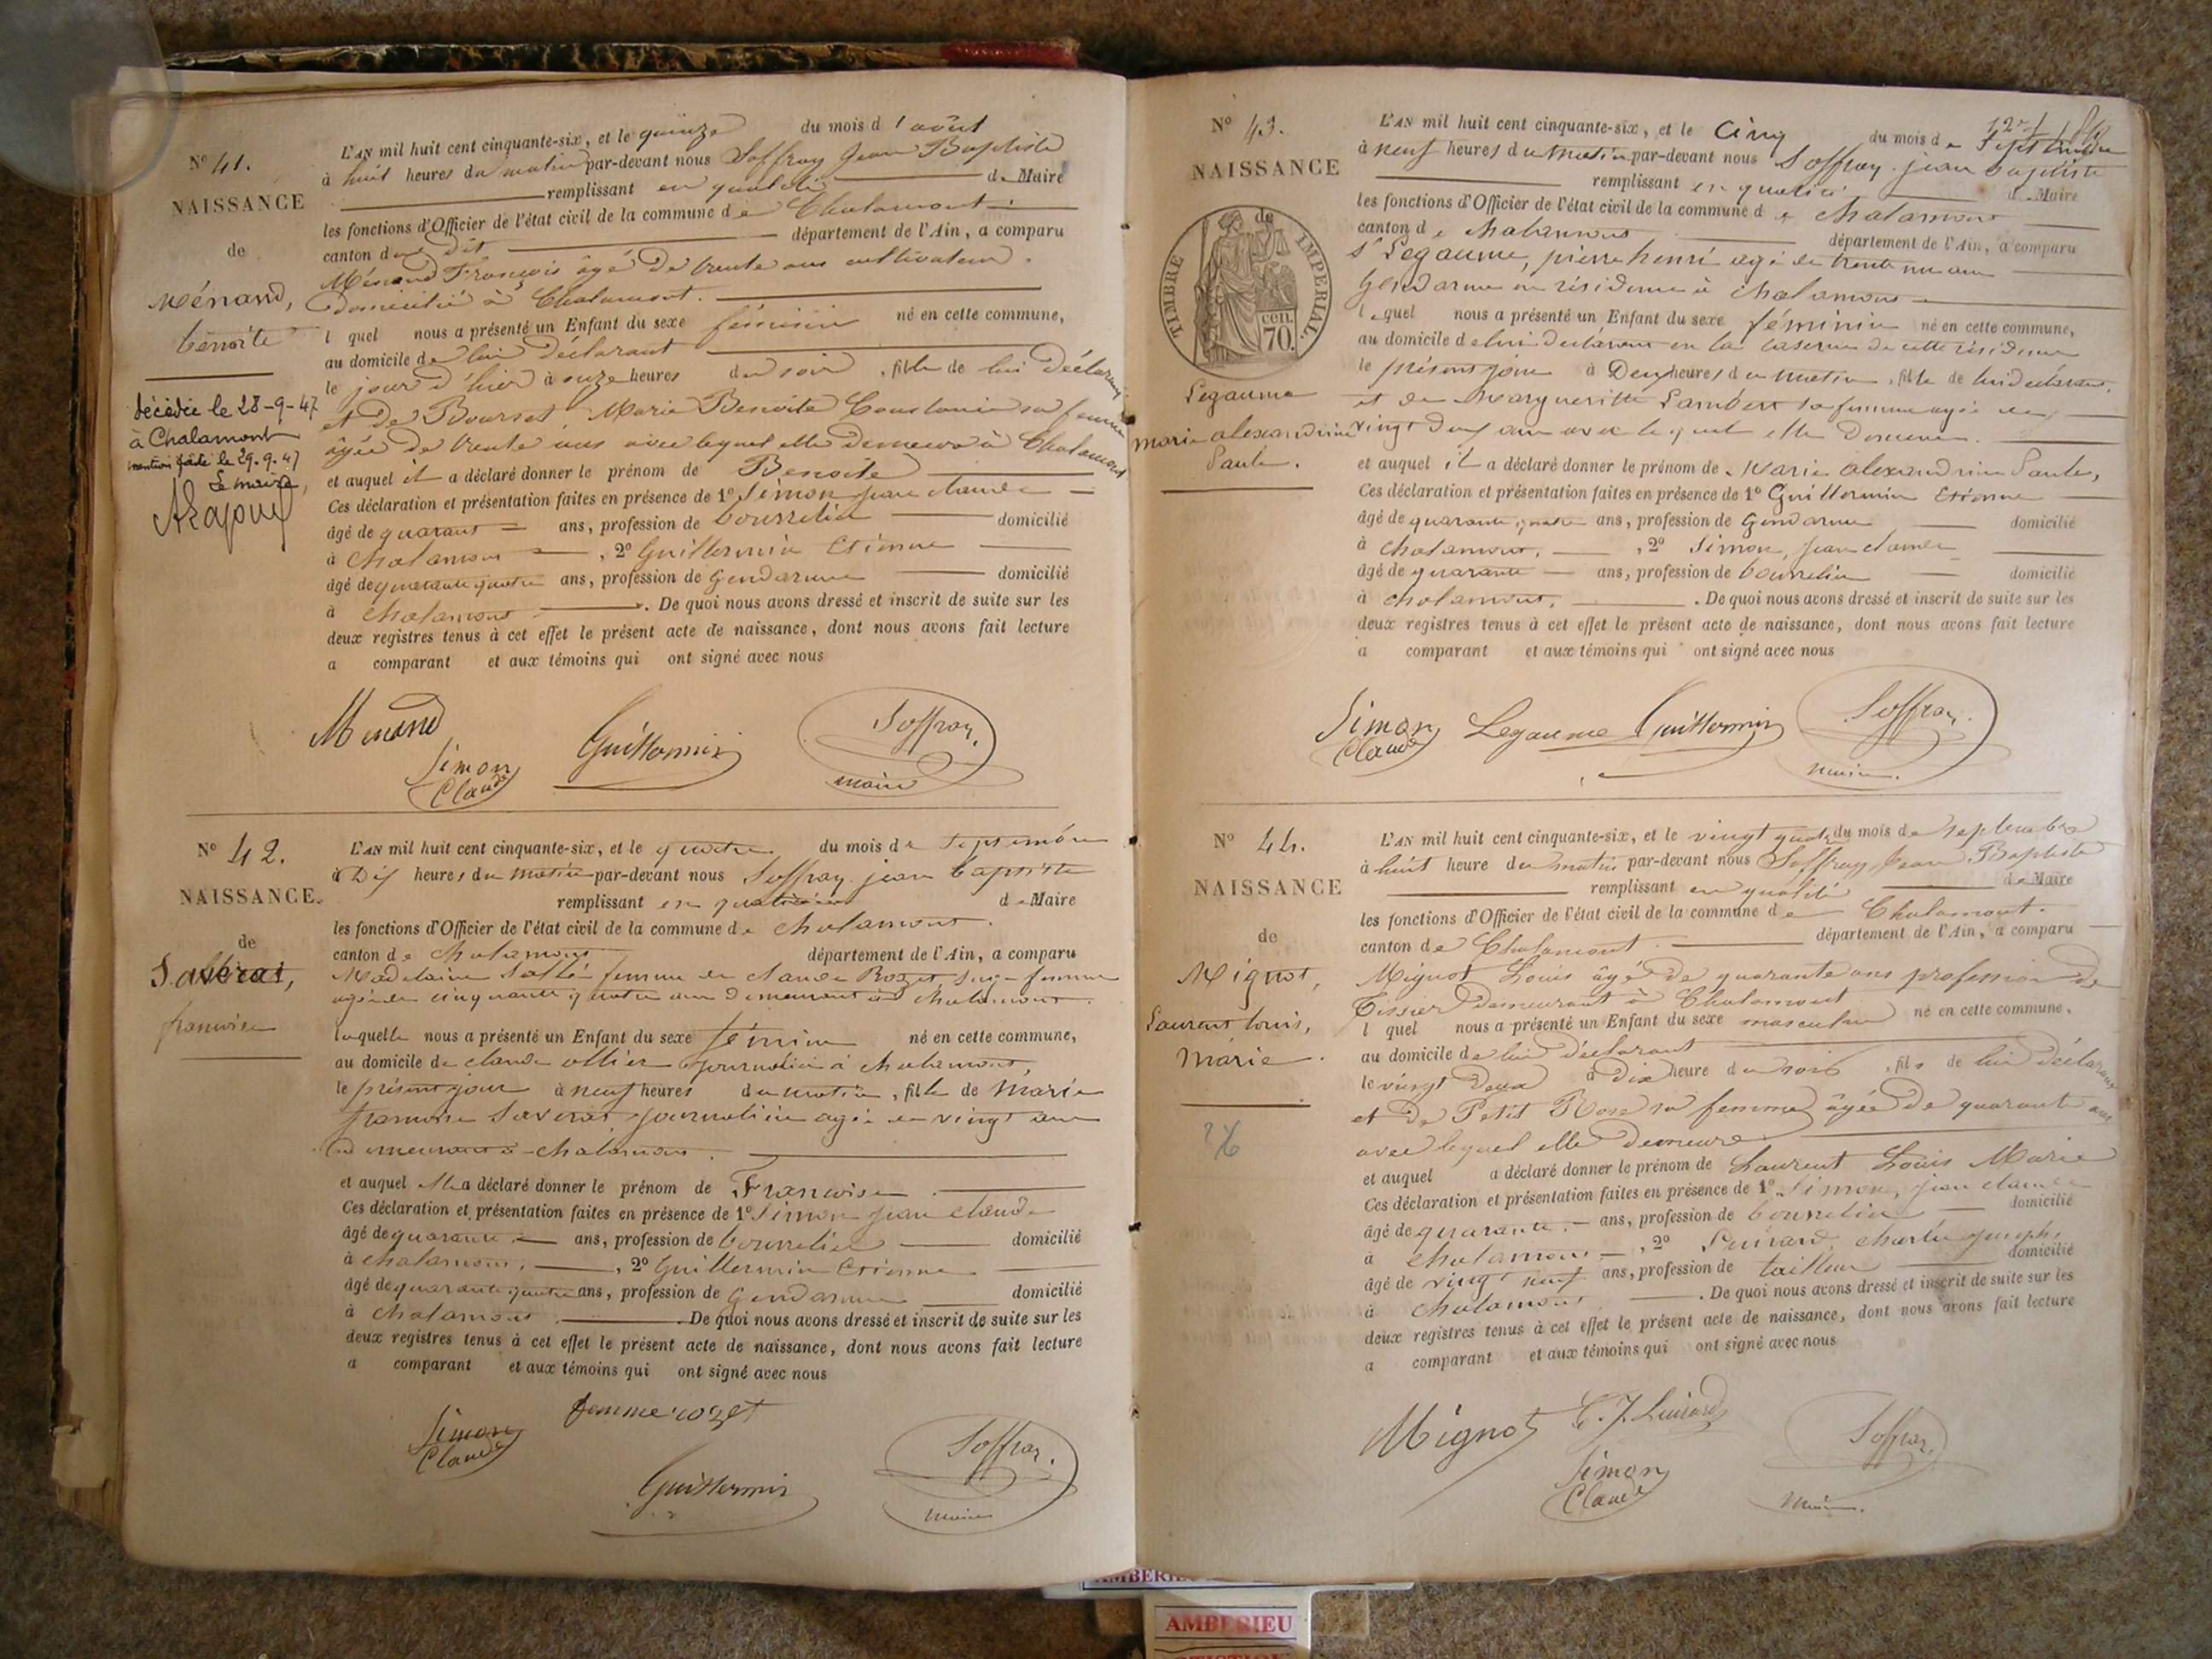 N° 41.
NAISSANCE
de
Ménand,
benoîte
décédée le 28-9-47
à Chalamont
mention faite le 29.9.47
Le maire,
L'AN mil huit cent cinquante-six, et le quinze du mois d'août
à huit heures du matin par-devant nous Soffray Jean Baptiste
remplissant en qualité de Maire
les fonctions d'Officier de l'état civil de la commune de Chalamont
canton du dit département de l'Ain, a comparu
Ménand François âgé de trente ans cultivateur
domicilié à Chalamont.
lequel nous a présenté un Enfant du sexe féminin né en cette commune,
au domicile de lui déclarant
le jour d'hier à onze heures du soir, fille de lui déclarant
et de Bourset Marie Benoite Constance sa femme
âgée de trente ans avec lequel elle demeure à Chalamont
et auquel il a déclaré donner le prénom de Benoite
Ces déclaration et présentation faites en présence de 1° Simon jean claude
âgé de quarante ans, profession de bourrelier domicilié
à chalamont, 2° Guillermin Etienne
âgé de quarante quatre ans, profession de Gendarme domicilié
à chalamont. De quoi nous avons dressé et inscrit de suite sur les
deux registres tenus à cet effet le présent acte de naissance, dont nous avons fait lecture
a comparant et aux témoins qui ont signé avec nous
Menand
Simon
Claude
Guillermin
Soffray
maire
N° 42.
NAISSANCE.
de
Saverat,
francoise
L'AN mil huit cent cinquante-six, et le quatre du mois de septembre
à Dix heures du matin par-devant nous Soffray jean baptiste
remplissant en qualité de Maire
les fonctions d'Officier de l'état civil de la commune de chalamont.
canton de chalamont département de l'Ain, a comparu
Madelaine femme de claude Rozet, sage-femme
agée de cinquante quatre ans demeurant à chalamont.
laquelle nous a présenté un Enfant du sexe féminin né en cette commune,
au domicile de claude ollier journalier à chalamont,
le présent jour à neuf heures du matin, fille de marie
francoise Saverat, journalière agée de vingt ans
demeurant à chalamont.
et auquel elle a déclaré donner le prénom de Francoise
Ces déclaration et présentation faites en présence de 1° Simon jean claude
âgé de quarante ans, profession de bourrelier domicilié
à chalamont, 2° Guillermin Etienne
âgé de quarante quatre ans, profession de Gendarme domicilié
à chalamont. De quoi nous avons dressé et inscrit de suite sur les
deux registres tenus à cet effet le présent acte de naissance, dont nous avons fait lecture
a comparant et aux témoins qui ont signé avec nous
femme rozet
Simon
Claude
Guillermin
Soffray.
maire
N° 43.
NAISSANCE
TIMBRE IMPERIAL.
de
cen.
70.
Legaume
marie alexandrine
Paule.
L'AN mil huit cent cinquante-six, et le Cinq du mois de Septembre
à neuf heures du matin par-devant nous Soffray jean baptiste
remplissant en qualité de Maire
les fonctions d'Officier de l'état civil de la commune de chalamont
canton de chalamont département de l'Ain, a comparu
Legaume, pierre henri agé de trente un ans
gendarme en résidence à chalamont
lequel nous a présenté un Enfant du sexe féminin né en cette commune,
au domicile de lui déclarant en la caserne de cette résidence
le présent jour à Deux heures du matin, fille de lui déclarant,
et de Margueritte Lambert sa femme agée de
vingt deux ans avec lequel elle Demeure.
et auquel il a déclaré donner le prénom de Marie alexandrine Paule,
Ces déclaration et présentation faites en présence de 1° Guillermin Etienne
âgé de quarante quatre ans, profession de Gendarme domicilié
à chalamont, 2° Simon, jean claude
âgé de quarante ans, profession de bourrelier domicilié
à chalamont. De quoi nous avons dressé et inscrit de suite sur les
deux registres tenus à cet effet le présent acte de naissance, dont nous avons fait lecture
a comparant et aux témoins qui ont signé avec nous
Simon
Claude
Legaume
Guillermin
Soffray.
maire.
N° 44.
NAISSANCE
de
Mignot,
Laurent louis,
marie.
L'AN mil huit cent cinquante-six, et le vingt quatre du mois de septembre
à huit heure du matin par-devant nous Soffray Jean Baptiste
remplissant en qualité de Maire
les fonctions d'Officier de l'état civil de la commune de Chalamont.
canton de Chalamont. département de l'Ain, a comparu
Mignot Louis âgé de quarante ans profession de
Tissier demeurant à Chalamont
lequel nous a présenté un Enfant du sexe masculin né en cette commune,
au domicile de lui déclarant
le vingt deux à dix heure du soir, fils de lui déclarant
et de Petit Rose sa femme âgée de quarante ans
avec lequel elle demeure
et auquel a déclaré donner le prénom de Laurent Louis Marie
Ces déclaration et présentation faites en présence de 1° Simon, jean claude
âgé de quarante ans, profession de bourrelier domicilié
à chalamont, 2° charles joseph,
âgé de vingt neuf ans, profession de tailleur domicilié
à chalamont. De quoi nous avons dressé et inscrit de suite sur les
deux registres tenus à cet effet le présent acte de naissance, dont nous avons fait lecture
a comparant et aux témoins qui ont signé avec nous
Mignot
Simon
Claude
Soffray
maire.
AMBERIEU